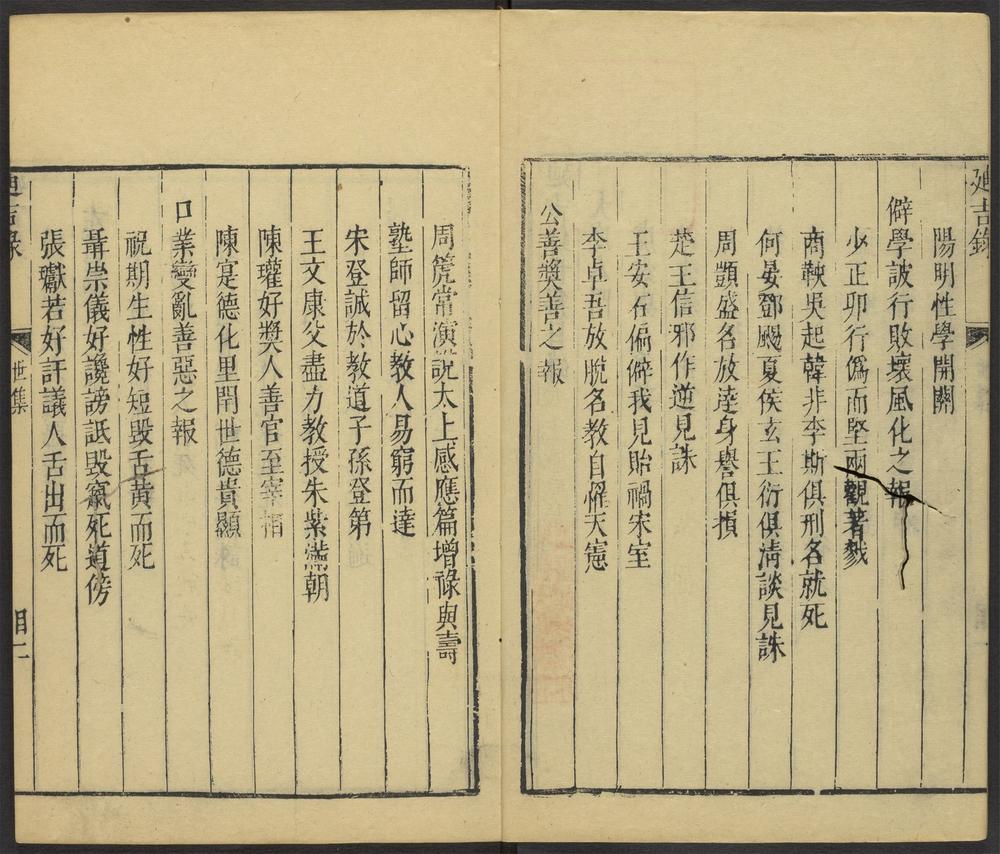 廸吉錄
陽明性學開關
僻學詖行敗壞風化之報
少正卯行僞而堅兩觀著戮
商鞅吳起韓非李斯俱刑名就死
何晏鄧颺夏侯玄王衍俱淸談見誅
周顗盛名放達身譽俱損
楚王信邪作逆見誅
王安石偏僻我見貽禍宋室
李卓吾放脫名教自罹天憲
公善獎善之報
周箎常演說太上感應篇增祿與壽
塾師留心教人易窮而達
宋登誠於教道子孫登第
王文康父盡力教授朱紫滿朝
陳瓘好獎人善官至宰相
陳寔德化里閈世德貴顯
口業變亂善惡之報
祝期生性好短毀舌黃而死
聶崇儀好讒謗詆毀竄死道傍
張瓛若好訐議人舌出而死
廸吉錄
世集
目二